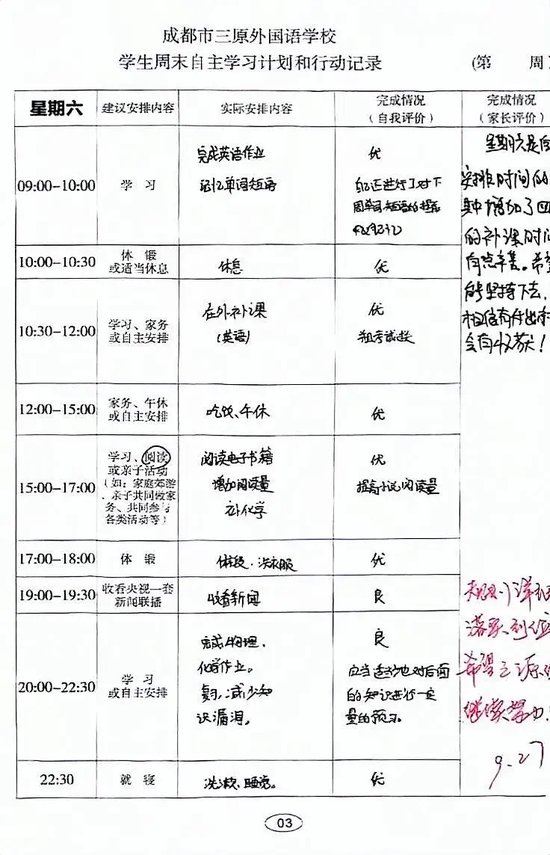 成都市三原外国语学校
学生周末自主学习计划和行动记录
(第 周)
星期六
建议安排内容
实际安排内容
完成情况
（自我评价）
完成情况
（家长评价）
09:00-10:00
学 习
完成英语作业
记忆单词短语
优
周单词短语的
10:00-10:30
体 锻
或适当休息
休息
优
10:30-12:00
学习、家务
或自主安排
在外补课
(英语)
优
12:00-15:00
家务、午休
或自主安排
吃饭、午休
优
15:00-17:00
学习、阅读
或亲子活动
（如：家庭郊游
、亲子共同做家
务、共同参与
各类活动等）
阅读电子书籍
增加阅读量
补化学
优
提高小说阅读量
17:00-18:00
体 锻
体锻、洗衣服
优
19:00-19:30
收看央视一套
新闻联播
收看新闻
良
20:00-22:30
学 习
或自主安排
完成物理，
化学作业。
复习，减少知
识漏洞。
良
应当适当地对后面
的知识进行一定
量的预习。
22:30
就 寝
洗漱、睡觉。
优
星期六是
安排时间的
其中增加了
的补课时间
能坚持下去，
相信有付出
会有收获！
落实到位
希望
继续努力
9.27
03